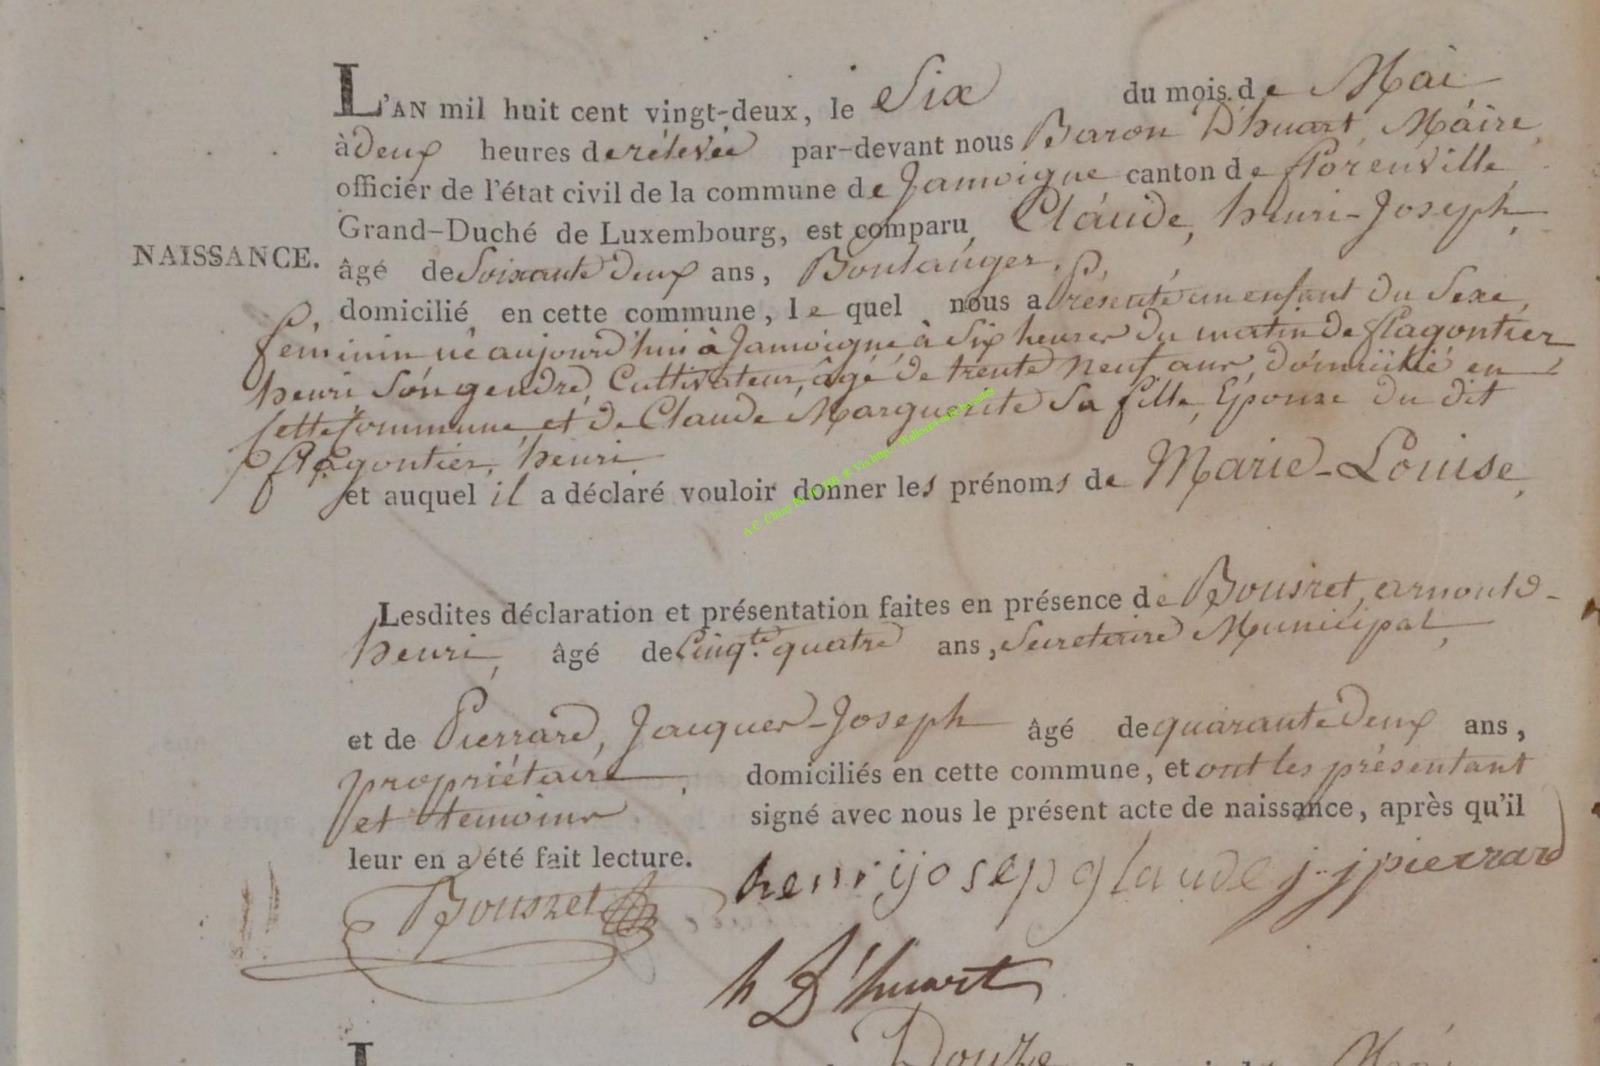 L'AN mil huit cent vingt-deux, le Six du mois de Mai
à deux heures de rélevée par-devant nous Baron D'huart, Máire,
officier de l'état civil de la commune de Jamoigne canton de florenville,
Grand-Duché de Luxembourg, est comparu, Claude, henri-Joseph,
NAISSANCE.
âgé de Soixante deux ans, Boulanger,
domicilié en cette commune, le quel nous a Présenté un enfant du Sexe
feminin né aujourd'hui à Jamoigne à Six heures du matin de flagontier
henri Son gendre, Cultivateur, âgé de trente neuf ans, domicilié en
cette Commune, et de Claude Marguerite Sa fille, Epouse du dit
flagontier, henri
et auquel il a déclaré vouloir donner les prénoms de Marie-Louise,
Lesdites déclaration et présentation faites en présence de Bousret, arnould-
henri, âgé de Cinqte quatre ans, Secretaire Municipal,
et de Pierrard, Jacques-Joseph âgé de quarante deux ans,
propriétaire, domiciliés en cette commune, et ont les présentant
et temoins signé avec nous le présent acte de naissance, après qu'il
leur en a été fait lecture.
henrijjosep glaude j-jpierrard
Bousret
h D'huart
Douze